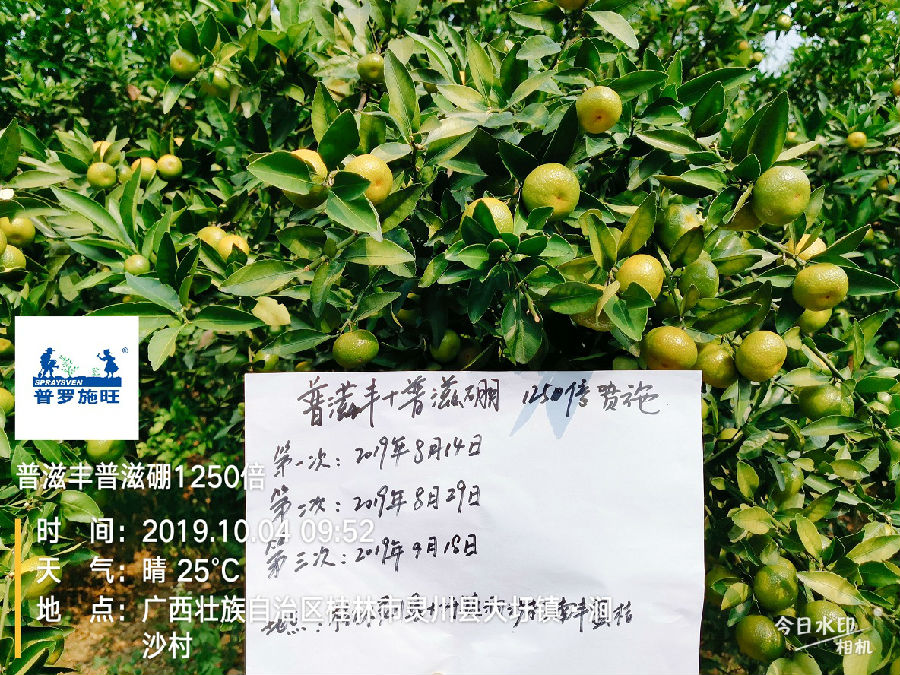 SPRAYSVEN
®
普罗施旺
普滋丰+普滋硼 1250倍
第一次：2019年8月14日
第二次：2019年8月29日
第三次：2019年9月18日
地点：
普滋丰普滋硼1250倍
时 间：2019.10.04 09:52
天 气：晴 25℃
地 点：广西壮族自治区桂林市灵川县大圩镇 涧
沙村
今日水印
相机